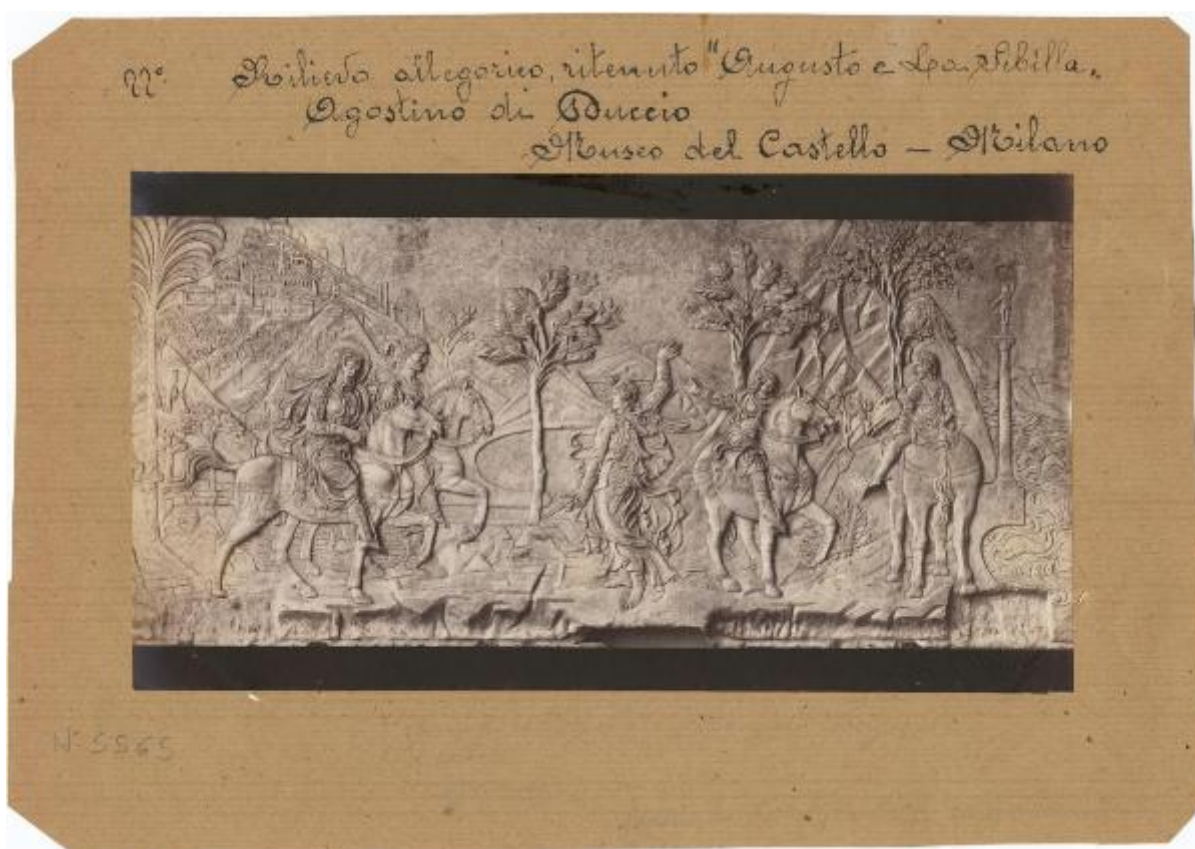 77° Rilievo allegorico, ritenuto "Augusto e La Sibilla"
Agostino di Duccio
Museo del Castello — Milano
N° 5565